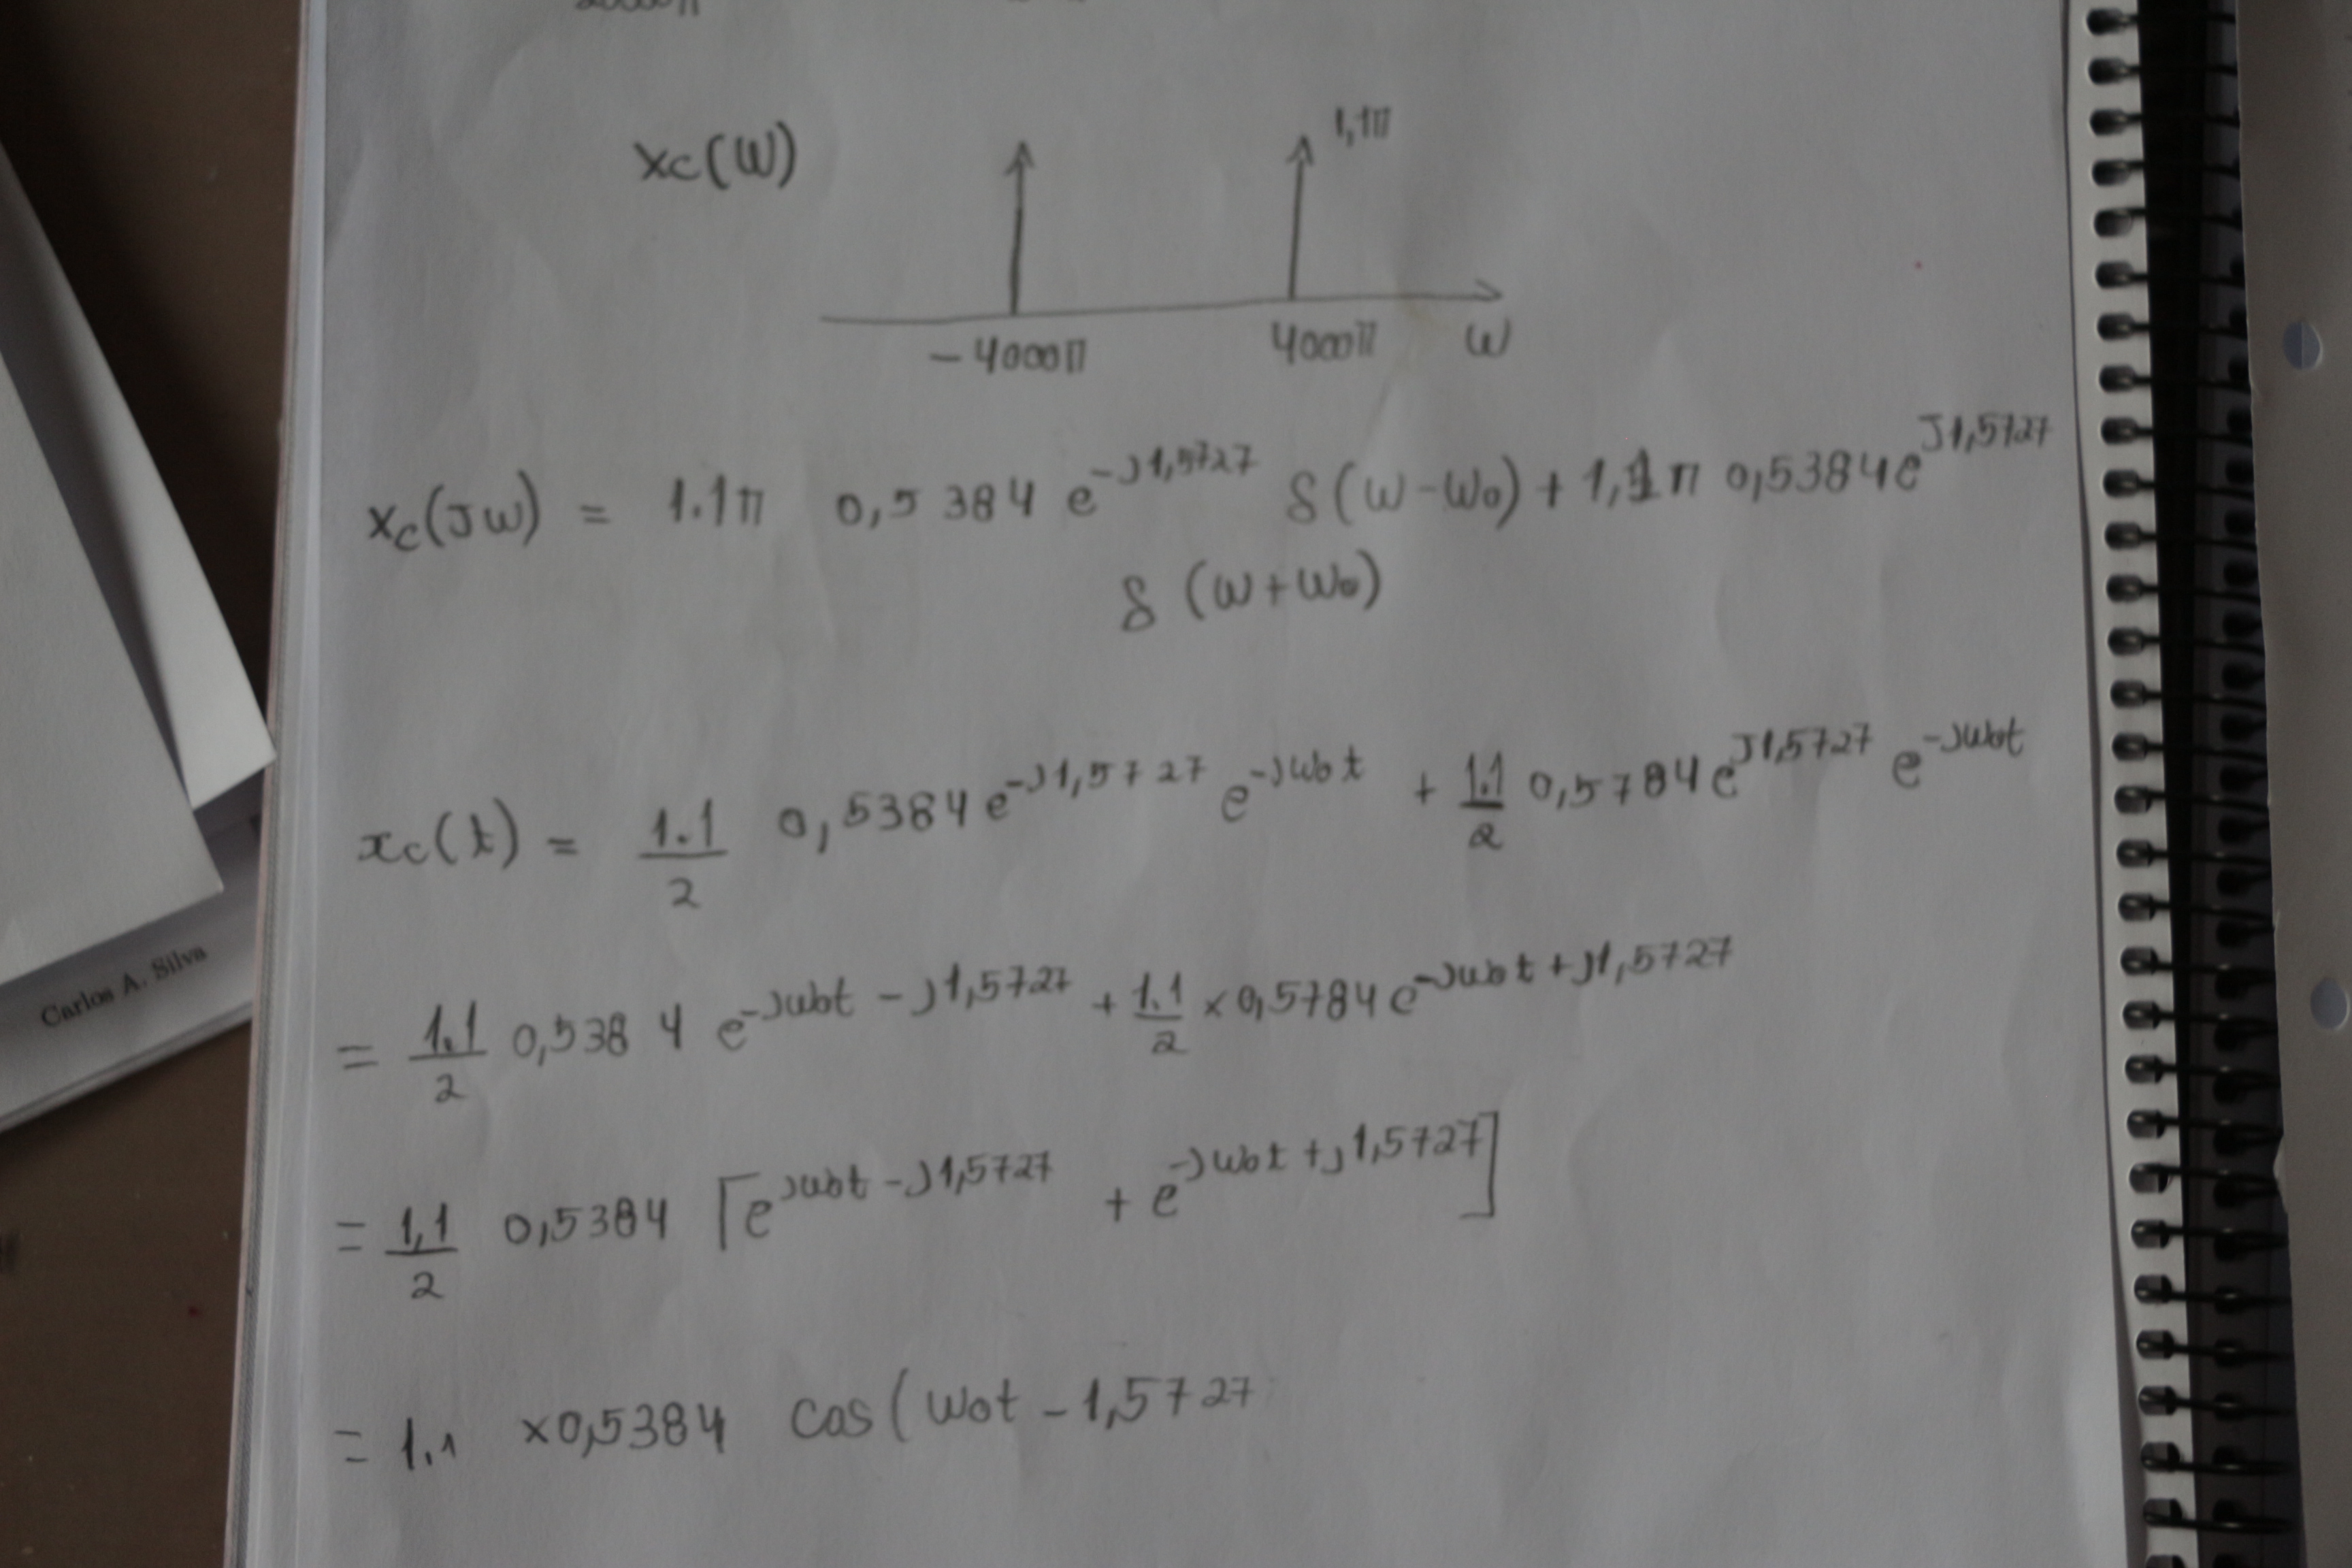 xc(W)
1,1π
-4000π
4000π
W
xc(Jw) = 1.1π 0,5384 e^-J1,5727 δ(w-w0) + 1,1π 0,5384 e^J1,5727
δ(w+w0)
xc(t) = 1.1/2 0,5384 e^-J1,5727 e^-Jw0t + 1.1/2 0,5784 e^J1,5727 e^-Jw0t
= 1.1/2 0,5384 e^-Jw0t - J1,5727 + 1.1/2 x 0,5784 e^-Jw0t + J1,5727
= 1,1/2 0,5384 [e^Jw0t - J1,5727 + e^-Jw0t + J1,5727]
= 1.1 x0,5384 cos(w0t - 1,5727
Carlos A. Silva